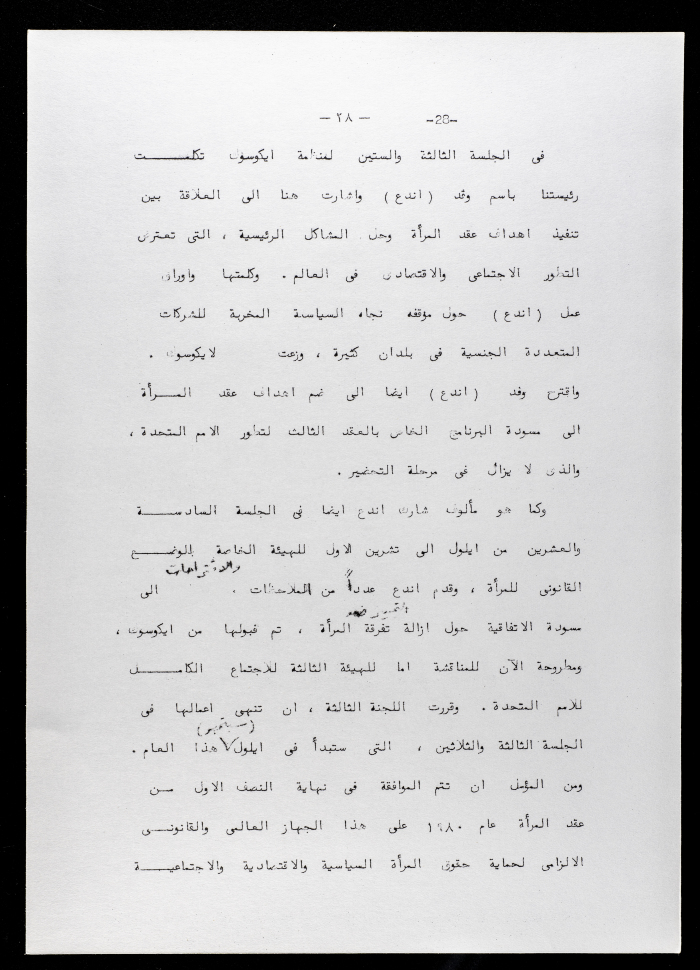 — ٢٨ — -28-
فى الجلسة الثالثة والستين لمنظمة ايكوسوك تكلمــــت
رئيستنا باسم وفد (اندع) واشارت هنا الى العلاقة بين
تنفيذ اهداف عقد المرأة وحل المشاكل الرئيسية ، التى تعترض
التطور الاجتماعى والاقتصادى فى العالم . وكلمتها واوراق
عمل (اندع) حول مؤقفه تجاه السياسة المخربة للشركات
المتعددة الجنسية فى بلدان كثيرة ، وزعت لايكوسوك .
واقترح وفد (اندع) ايضا الى ضم اهداف عقد المــرأة
الى مسودة البرنامج الخاص بالعقد الثالث لتطور الامم المتحدة ،
والذى لا يزال فى مرحلة التحضير .
وكما هو مألوف شارك اندع ايضا فى الجلسة السادســة
والعشرين من ايلول الى تشرين الاول للهيئة الخاصة بالوضــع
والاقتراحات
القانونى للمرأة ، وقدم اندع عدداً من الملاحظات . الى
التمييز ضد
مسودة الاتفاقية حول ازالة تفرقة المرأة ، تم قبولها من ايكوسوك ،
ومطروحة الآن للمناقشة اما للهيئة الثالثة للاجتماع الكامــل
للامم المتحدة . وقررت اللجنة الثالثة ، ان تنهى اعمالها فى
(سبتمبر)
الجلسة الثالثة والثلاثين ، التى ستبدأ فى ايلول هذا العام .
ومن المؤمل ان تتم الموافقة فى نهاية النصف الاول مــن
عقد المرأة عام ١٩٨٠ على هذا الجهاز العالمى والقانونــى
الالزامى لحماية حقوق المرأة السياسية والاقتصادية والاجتماعيــة